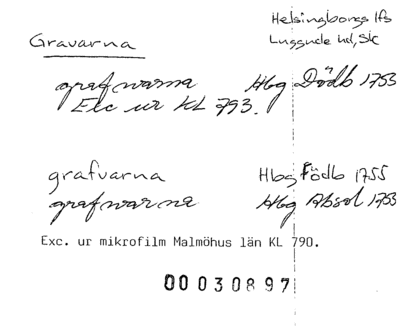 Helsingborgs lfs
Gravarna
Luggude hd, Sk
grafwarna Hbg Dödb 1753
Exc ur KL 793.
grafvarna Hbg Födb 1755
grafwarna Hbg Absol 1753
Exc. ur mikrofilm Malmöhus län KL 790.
00030897